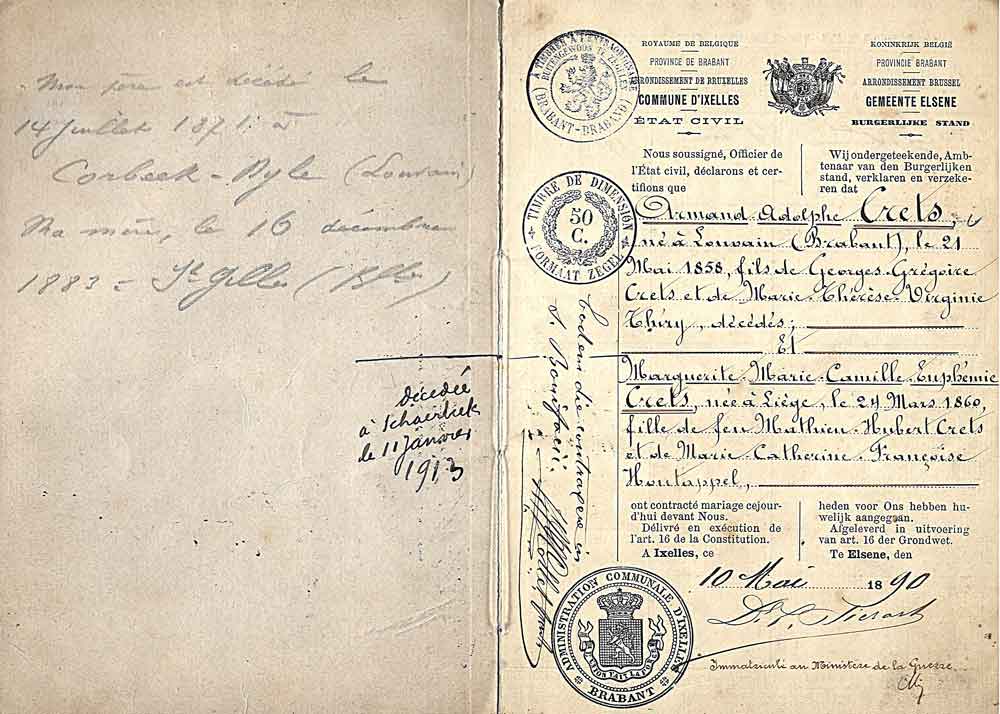 Mon père est décédé le
14 Juillet 1871. à
Corbeek-Dyle (Louvain)
Ma mère, le 16 décembre
1883 = St Gilles (Blles)
décedée
à Schaerbeek
le 11 Janvier
1913
A TIMBRER A L'EXTRAORDINAIRE
BUITENGEWOON TE ZEGELEN
(BRABANT-BRABAND)
ROYAUME DE BELGIQUE
PROVINCE DE BRABANT
ARRONDISSEMENT DE BRUXELLES
COMMUNE D'IXELLES
ÉTAT CIVIL
KONINKRIJK BELGIË
PROVINCIE BRABANT
ARRONDISSEMENT BRUSSEL
GEMEENTE ELSENE
BURGERLIJKE STAND
TIMBRE DE DIMENSION
50
C.
FORMAAT ZEGEL
Nous soussigné, Officier de
l'État civil, déclarons et cer-
tifions que
Wij ondergeteekende, Amb-
tenaar van den Burgerlijken
stand, verklaren en verzeke-
ren dat
Armand-Adolphe Crets,
né à Louvain (Brabant), le 21
Mai 1858, fils de Georges-Grégoire
Crets et de Marie-Thérèse-Virginie
Thiry, décédés;
Et
Marguerite-Marie-Camille-Euphémie
Crets, née à Liége, le 24 Mars 1860,
fille de feu Mathieu-Hubert Crets
et de Marie-Catherine-Françoise
Houtappel,
ont contracté mariage cejour-
d'hui devant Nous.
Délivré en exécution de
l'art. 16 de la Constitution.
A Ixelles, ce
heden voor Ons hebben hu-
welijk aangegaan.
Afgeleverd in uitvoering
van art. 16 der Grondwet.
Te Elsene, den
10 Mai 1890
Eodem die contraxere in
S. Bonifacii.
ADMINISTRATION COMMUNALE D'IXELLES
BRABANT
Immatriculé au Ministère de la Guerre